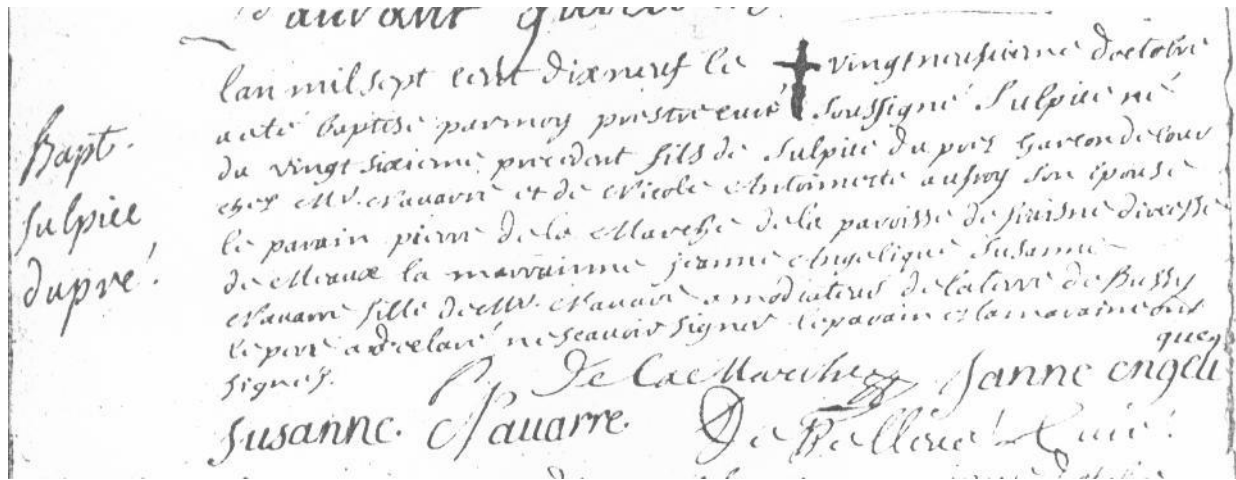 Bapt.
Sulpice
dupré.
Lan mil sept cent dixneuf le vingtneufieme doctobre
a eté baptisé par moy prestre curé soussigné Sulpice né
du vingt sixieme precedent fils de Sulpice du prez garcon de cour
chez Mr. Navarre et de Nicole Antoinette aufroy son épouse
le parain pierre de la Marche de la paroisse de diocesse
de Meaux la marrainne jeanne Angelique Susanne
Navarre fille de Mr. Navarre amodiateur de la terre de Bussy
le pere a declaré ne scavoir signer le parain et la maraine ont
signez.
P. De La Marche Janne engeli
que
Susanne. Navarre. curé.